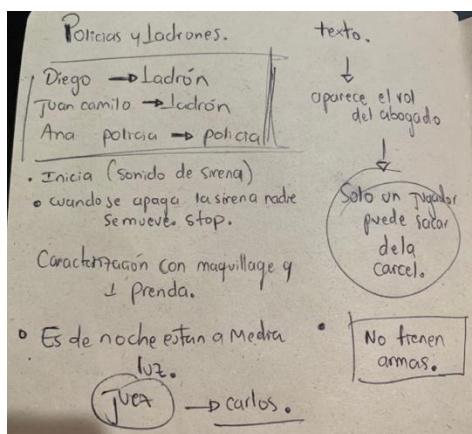 Policias y Ladrones.
Diego → Ladrón
Juan camilo → ladrón
Ana policia → policia
• Inicia (sonido de sirena)
• cuando se apaga la sirena nadie
se mueve. stop.
Caracterización con maquillage y
1 prenda.
• Es de noche estan a Media
luz.
Juez → carlos.
texto.
↓
aparece el rol
del abogado
↓
Solo un jugador
puede sacar
dela
carcel.
• No tienen
armas.